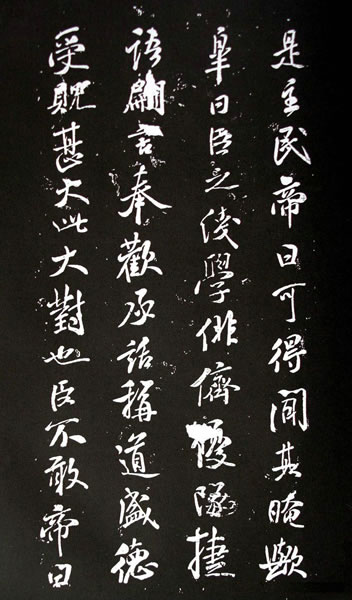 是主民帝曰可得聞其晻歟
皐曰臣之淺學俳儕優隱捷
語言奉歡承話稱道盛德
受貺甚大此大對也臣不敢帝曰